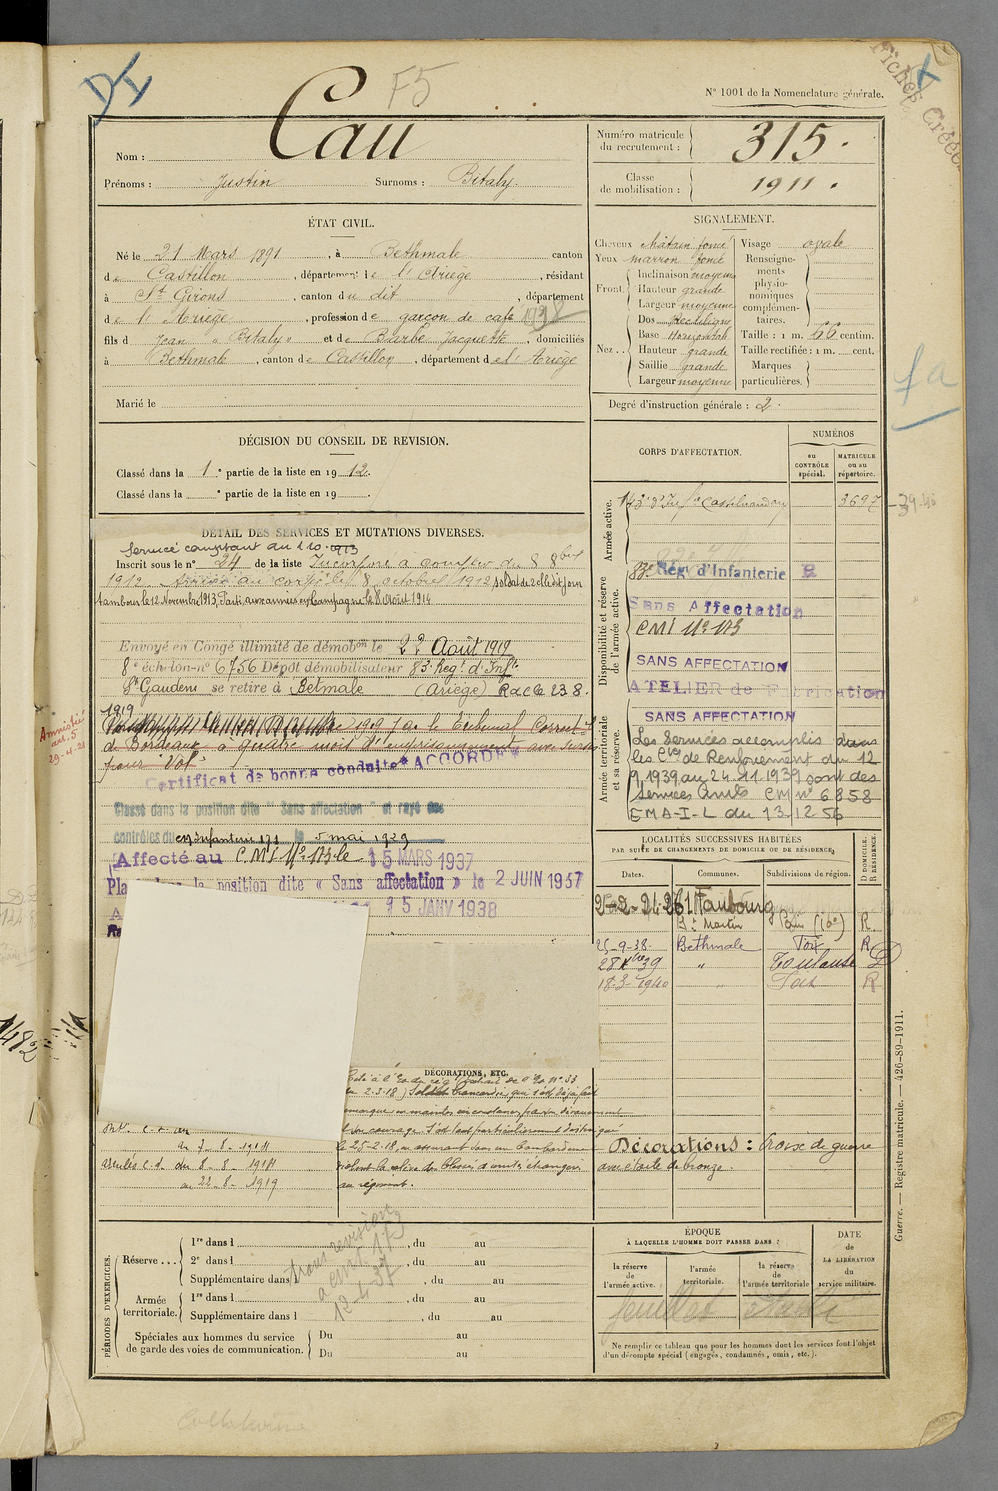 DI
F5
Fiches Créées
N° 1001 de la Nomenclature générale.
Nom : Cau
Prénoms : Justin Surnoms : Bitaly.
Numéro matricule du recrutement : 315.
Classe de mobilisation : 1911.
ÉTAT CIVIL.
Né le 21 Mars 1891, à Bethmale canton
de Castillon, département de l'Ariège, résidant
à St Girons, canton du dit, département
de l'Ariège, profession de garçon de café
fils de Jean "Bitaly" et de Barbe Jacquette, domiciliés
à Bethmale, canton de Castillon, département de l'Ariège
Marié le
SIGNALEMENT.
Cheveux châtain foncé
Yeux marron foncé
Front. Inclinaison moyenne
Hauteur grande
Largeur moyenne
Nez. Dos Rectiligne
Base Horizontale
Hauteur grande
Saillie grande
Largeur moyenne
Visage ovale
Renseignements physionomiques complémentaires.
Taille : 1 m. 66 centim.
Taille rectifiée : 1 m. cent.
Marques particulières.
Degré d'instruction générale : 2.
fa
DÉCISION DU CONSEIL DE REVISION.
Classé dans la 1e partie de la liste en 1912.
Classé dans la e partie de la liste en 19 .
CORPS D'AFFECTATION.
NUMÉROS
au CONTRÔLE spécial.
MATRICULE ou au répertoire.
Armée active.
143e d'Inf. Castelnaudary 3697
Disponibilité et réserve de l'armée active.
83e Régt d'Infanterie R
Sans Affectation
CMI N° 173
SANS AFFECTATION
ATELIER de Fabrication
Armée territoriale et sa réserve.
SANS AFFECTATION
Les Services accomplis dans
les Cies de Renforcement du 12
9.1939 au 24.11.1939 sont des
Services Armés CM n° 6858
EMA-I-L du 13.12.56
DÉTAIL DES SERVICES ET MUTATIONS DIVERSES.
Service comptant du 1.10.1913
Inscrit sous le n° 24 de la liste Incorporé à compter du 8 8bre
1912. Arrivé au corps le 8 octobre 1912, soldat de 2e cl. dit jour
tambour le 12 Novembre 1913. Parti aux armées en Campagne le 8 Août 1914
Envoyé en Congé illimité de démobon le 22 Août 1919
8e échelon n° 6756 Dépôt démobilisateur 83e Regt d'Infie
St Gaudens se retire à Betmale (Ariège) R.d.c le 23.8.
1919
1919 par le Tribunal Correctl
de Bordeaux à quatre mois d'emprisonnement avec sursis
pour "Vol".
Amnistié
art. 5
29-4-21
Certificat de bonne conduite "ACCORDÉ"
Classé dans la position dite " Sans affectation " et rayé des
contrôles du CM Infanterie 173 le 5 mai 1939
Affecté au CMI N° 173 le 15 MARS 1937
Placé dans la position dite « Sans affectation » le 2 JUIN 1937
15 JANV 1938
LOCALITÉS SUCCESSIVES HABITÉES
PAR SUITE DE CHANGEMENTS DE DOMICILE OU DE RÉSIDENCE.
Dates. Communes. Subdivisions de région. D DOMICILE. R RÉSIDENCE.
2-2-24 261 Faubourg
St Martin R.
25-9-38. Bethmale Foix R
28 Xbre 39 " Toulouse D
18-3-1940 " Foix R
1482
DÉCORATIONS, ETC.
Cité à l'Ordre du régt (extrait de l'Ordre n° 33
du 2-3-18) Soldat brancardier, qui s'est déjà fait
remarquer en maintes circonstances par son dévouement
et son courage. S'est tout particulièrement distingué
le 25-2-18, en assurant dans un bombardement
violent la relève des blessés d'unités étrangères
au régiment.
au 7-8-1914
du 8-8-1914
au 22-8-1919
Décorations : Croix de guerre
avec étoile de bronze.
PÉRIODES D'EXERCICES.
Réserve...
1re dans l , du au
2e dans l , du au
Supplémentaire dans l , du au
Armée territoriale.
1re dans l , du au
Supplémentaire dans l , du au
Spéciales aux hommes du service de garde des voies de communication.
Du au
Du au
12-4-37
ÉPOQUE
À LAQUELLE L'HOMME DOIT PASSER DANS :
la réserve de l'armée active.
l'armée territoriale.
la réserve de l'armée territoriale
DATE de LA LIBÉRATION du service militaire.
feuillet
Ne remplir ce tableau que pour les hommes dont les services font l'objet
d'un décompte spécial (engagés, condamnés, omis, etc.).
Guerre. — Registre matricule. — 426-89-1911.